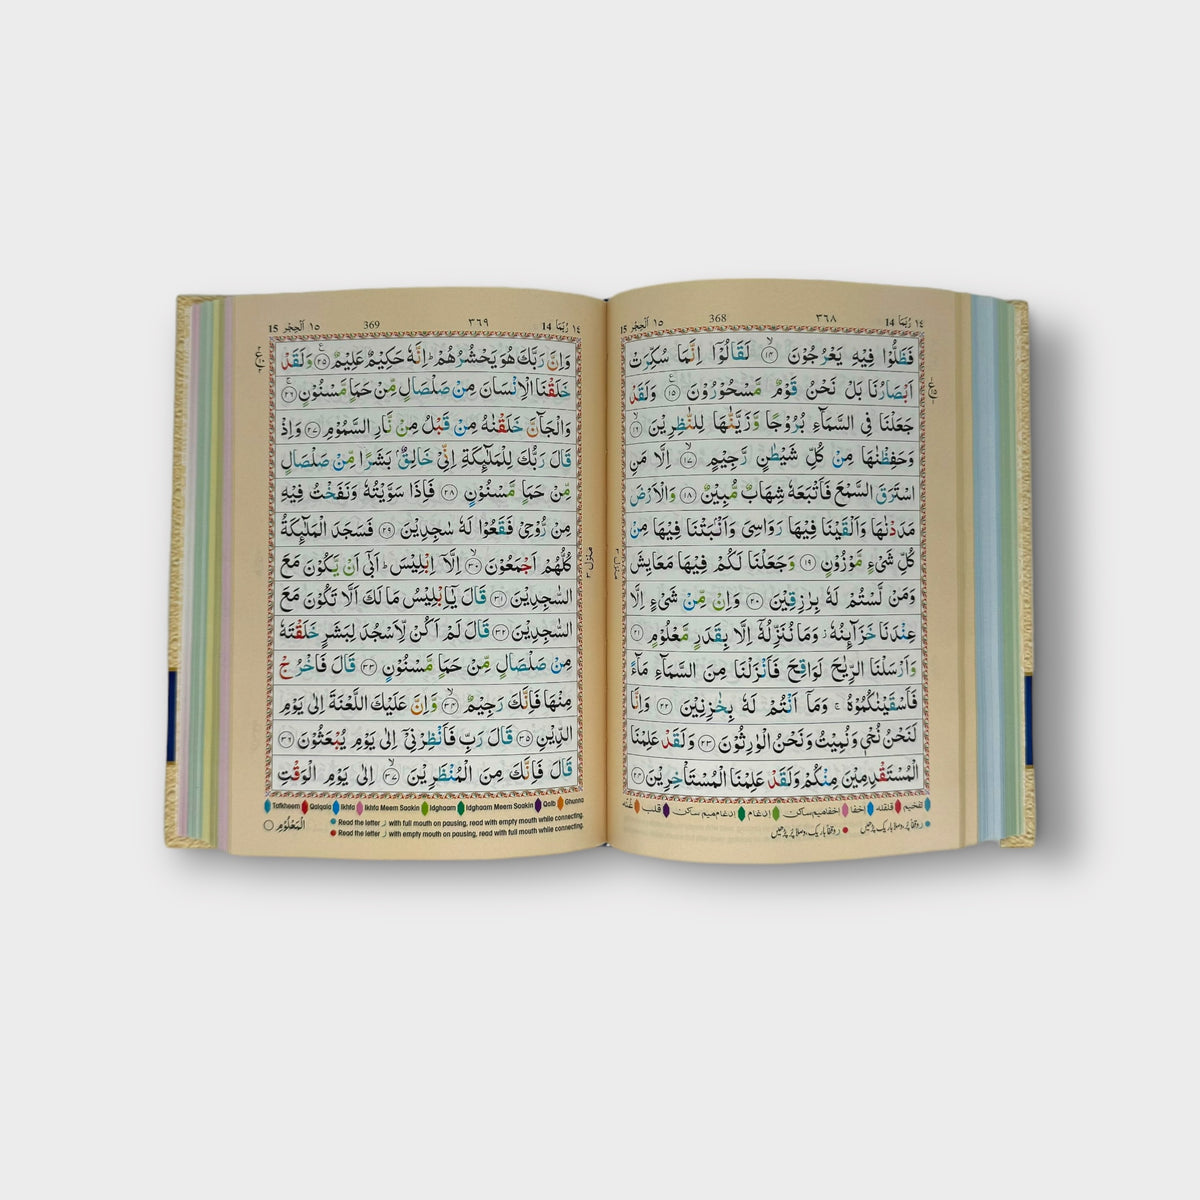 ١٤ رُبَمَا 14 ٣٦٨ 368 ١٥ اَلْحِجْر 15
فَظَلُّوْا فِيْهِ يَعْرُجُوْنَ ۙ١٤ لَقَالُوْۤا اِنَّمَا سُكِّرَتْ
اَبْصَارُنَا بَلْ نَحْنُ قَوْمٌ مَّسْحُوْرُوْنَ ١٥ۧ وَلَقَدْ
جَعَلْنَا فِى السَّمَآءِ بُرُوْجًا وَّزَيَّنّٰهَا لِلنّٰظِرِيْنَ ۙ١٦
وَحَفِظْنٰهَا مِنْ كُلِّ شَيْطٰنٍ رَّجِيْمٍ ۙ١٧ اِلَّا مَنِ
اسْتَرَقَ السَّمْعَ فَاَتْبَعَهٗ شِهَابٌ مُّبِيْنٌ ١٨ وَالْاَرْضَ
مَدَدْنٰهَا وَاَلْقَيْنَا فِيْهَا رَوَاسِىَ وَاَنْۢبَتْنَا فِيْهَا مِنْ
كُلِّ شَىْءٍ مَّوْزُوْنٍ ١٩ وَجَعَلْنَا لَكُمْ فِيْهَا مَعَايِشَ
وَمَنْ لَّسْتُمْ لَهٗ بِرٰزِقِيْنَ ٢٠ وَاِنْ مِّنْ شَىْءٍ اِلَّا
عِنْدَنَا خَزَآئِنُهٗ ؗ وَمَا نُنَزِّلُهٗۤ اِلَّا بِقَدَرٍ مَّعْلُوْمٍ ٢١
وَاَرْسَلْنَا الرِّيٰحَ لَوَاقِحَ فَاَنْزَلْنَا مِنَ السَّمَآءِ مَآءً
فَاَسْقَيْنٰكُمُوْهُ ۚ وَمَاۤ اَنْتُمْ لَهٗ بِخٰزِنِيْنَ ٢٢ وَاِنَّا
لَنَحْنُ نُحْىٖ وَنُمِيْتُ وَنَحْنُ الْوٰرِثُوْنَ ٢٣ وَلَقَدْ عَلِمْنَا
الْمُسْتَقْدِمِيْنَ مِنْكُمْ وَلَقَدْ عَلِمْنَا الْمُسْتَاْخِرِيْنَ ٢٤
تفخيم قلقله اخفا اخفاميم ساكن ادغام ادغام ميم ساكن قلب غنّه
١٥ اَلْحِجْر 15 ٣٦٩ 369 ١٤ رُبَمَا 14
وَاِنَّ رَبَّكَ هُوَ يَحْشُرُهُمْ ؕ اِنَّهٗ حَكِيْمٌ عَلِيْمٌ ٢٥ۧ وَلَقَدْ
خَلَقْنَا الْاِنْسَانَ مِنْ صَلْصَالٍ مِّنْ حَمَاٍ مَّسْنُوْنٍ ۚ٢٦
وَالْجَآنَّ خَلَقْنٰهُ مِنْ قَبْلُ مِنْ نَّارِ السَّمُوْمِ ٢٧ وَاِذْ
قَالَ رَبُّكَ لِلْمَلٰٓئِكَةِ اِنِّىْ خَالِقٌۢ بَشَرًا مِّنْ صَلْصَالٍ
مِّنْ حَمَاٍ مَّسْنُوْنٍ ٢٨ فَاِذَا سَوَّيْتُهٗ وَنَفَخْتُ فِيْهِ
مِنْ رُّوْحِىْ فَقَعُوْا لَهٗ سٰجِدِيْنَ ٢٩ فَسَجَدَ الْمَلٰٓئِكَةُ
كُلُّهُمْ اَجْمَعُوْنَ ۙ٣٠ اِلَّاۤ اِبْلِيْسَ ؕ اَبٰۤى اَنْ يَّكُوْنَ مَعَ
السّٰجِدِيْنَ ٣١ قَالَ يٰۤاِبْلِيْسُ مَا لَكَ اَلَّا تَكُوْنَ مَعَ
السّٰجِدِيْنَ ٣٢ قَالَ لَمْ اَكُنْ لِّاَسْجُدَ لِبَشَرٍ خَلَقْتَهٗ
مِنْ صَلْصَالٍ مِّنْ حَمَاٍ مَّسْنُوْنٍ ٣٣ قَالَ فَاخْرُجْ
مِنْهَا فَاِنَّكَ رَجِيْمٌ ۙ٣٤ وَّاِنَّ عَلَيْكَ اللَّعْنَةَ اِلٰى يَوْمِ
الدِّيْنِ ٣٥ قَالَ رَبِّ فَاَنْظِرْنِىْۤ اِلٰى يَوْمِ يُبْعَثُوْنَ ٣٦
قَالَ فَاِنَّكَ مِنَ الْمُنْظَرِيْنَ ۙ٣٧ اِلٰى يَوْمِ الْوَقْتِ
Tafkheem Qalqala Ikhfa Ikhfa Meem Saakin Idghaam Idghaam Meem Saakin Qalb Ghunna
Read the letter ر with full mouth on pausing, read with empty mouth while connecting.
Read the letter ر with empty mouth on pausing, read with full mouth while connecting.
الْمَعْلُوْمِ